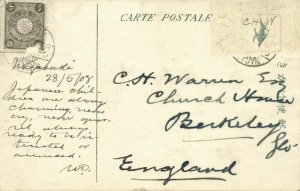 CARTE POSTALE
Nagasaki
28/5/08
Japanese chil-
dren are always
charming never
cry, never quar-
rel always
ready to be in-
terested or
amused.
C.H. Warren Esq
Church House
Berkeley
Glo
England